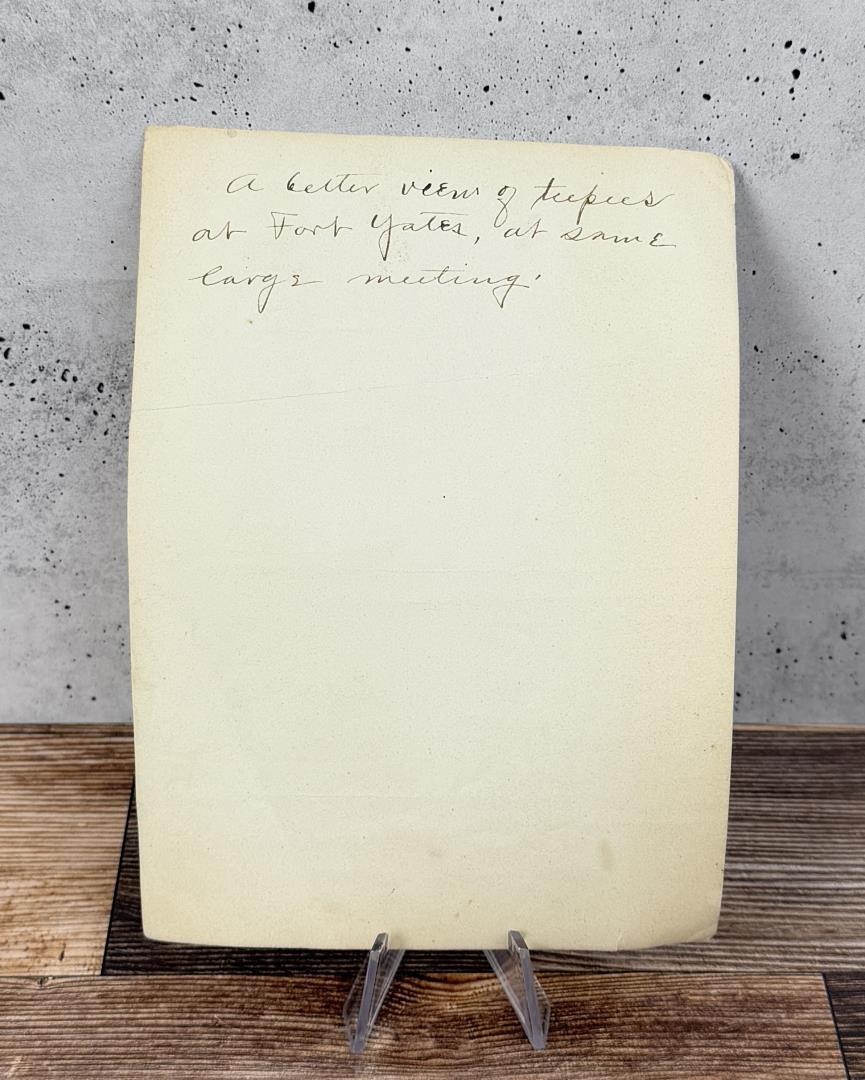 A better view of teepees
at Fort Yates, at same
large meeting.